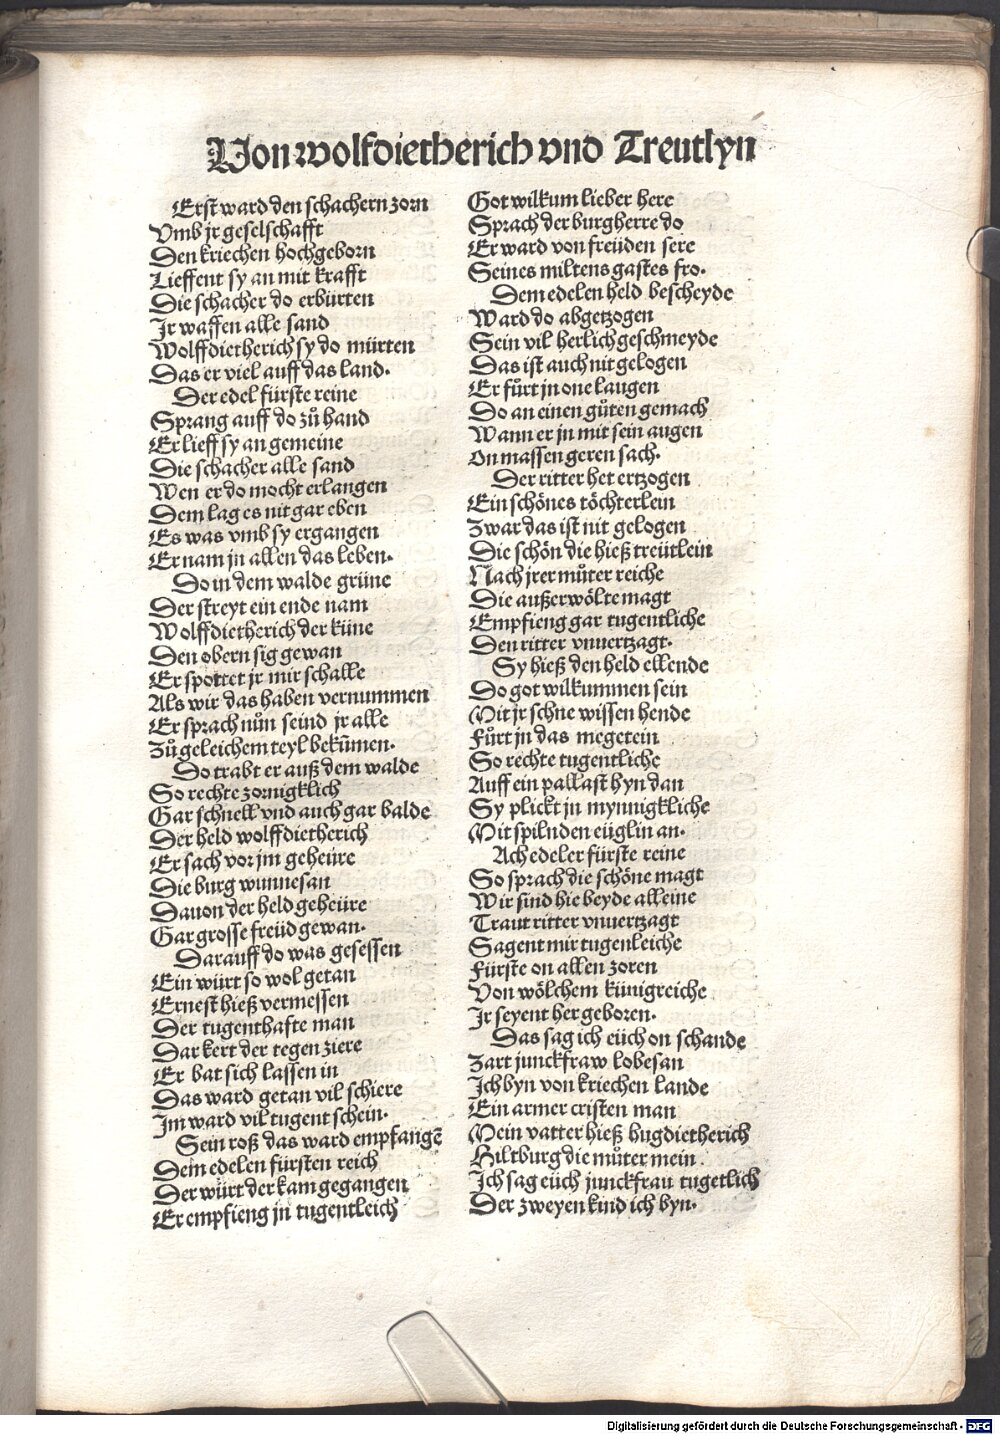 Von wolfdietherich vnd Treutlyn
Erst ward den schachern zorn
Vmb jr geselschafft
Den kriechen hochgeborn
Lieffent sy an mit krafft
Die schacher do erbürten
Jr waffen alle sand
Wolffdietherich sy do mürten
Das er viel auff das land.
Der edel fürste reine
Sprang auff do zů hand
Er lieff sy an gemeine
Die schacher alle sand
Wen er do mocht erlangen
Dem lag es nit gar eben
Es was vmb sy ergangen
Er nam jn allen das leben.
Do in dem walde grüne
Der streyt ein ende nam
Wolffdietherich der küne
Den obern sig gewan
Er spottet jr mir schalle
Als wir das haben vernummen
Er sprach nůn seind jr alle
Zů geleichem teyl bekūmen.
Do trabt er auß dem walde
So rechte zornigklich
Gar schnell vnd auch gar balde
Der held wolffdietherich
Er sach vor jm geheüre
Die burg wunnesan
Dauon der held geheüre
Gar grosse freüd gewan.
Darauff do was gesessen
Ein würt so wol getan
Ernest hieß vermessen
Der tugenthafte man
Dar kert der tegen ziere
Er bat sich lassen in
Das ward getan vil schiere
Im ward vil tugent schein.
Sein roß das ward empfangē
Dem edelen fürsten reich
Der würt der kam gegangen
Er empfieng jn tugentleich
Got wilkum lieber here
Sprach der burgherre do
Er ward von freüden sere
Seines miltens gastes fro.
Dem edelen held bescheyde
Ward do abgetzogen
Sein vil herlich geschmeyde
Das ist auch nit gelogen
Er fůrt jn one laugen
Do an einen gůten gemach
Wann er jn mit sein augen
On massen geren sach.
Der ritter het ertzogen
Ein schönes töchterlein
Zwar das ist nit gelogen
Die schön die hieß treütlein
Nach jrer můter reiche
Die außerwölte magt
Empfieng gar tugentliche
Den ritter vnuertzagt.
Sy hieß den held ellende
Do got wilkummen sein
Mit jr schne wissen hende
Fůrt jn das megetein
So rechte tugentliche
Auff ein pallast hyn dan
Sy plickt jn mynnigkliche
Mit spilnden eüglin an.
Ach edeler fürste reine
So sprach die schöne magt
Wir sind hie beyde alleine
Traut ritter vnuertzagt
Sagent mir tugenleiche
Fürste on allen zoren
Von wölchem künigreiche
Jr seyent her geboren.
Das sag ich eüch on schande
Zart junckfraw lobesan
Ich byn von kriechen lande
Ein armer cristen man
Mein vatter hieß hugdietherich
Hiltburg die můter mein
Ich sag eüch junckfrau tugetlich
Der zweyen kind ich byn.
Digitalisierung gefördert durch die Deutsche Forschungsgemeinschaft - DFG